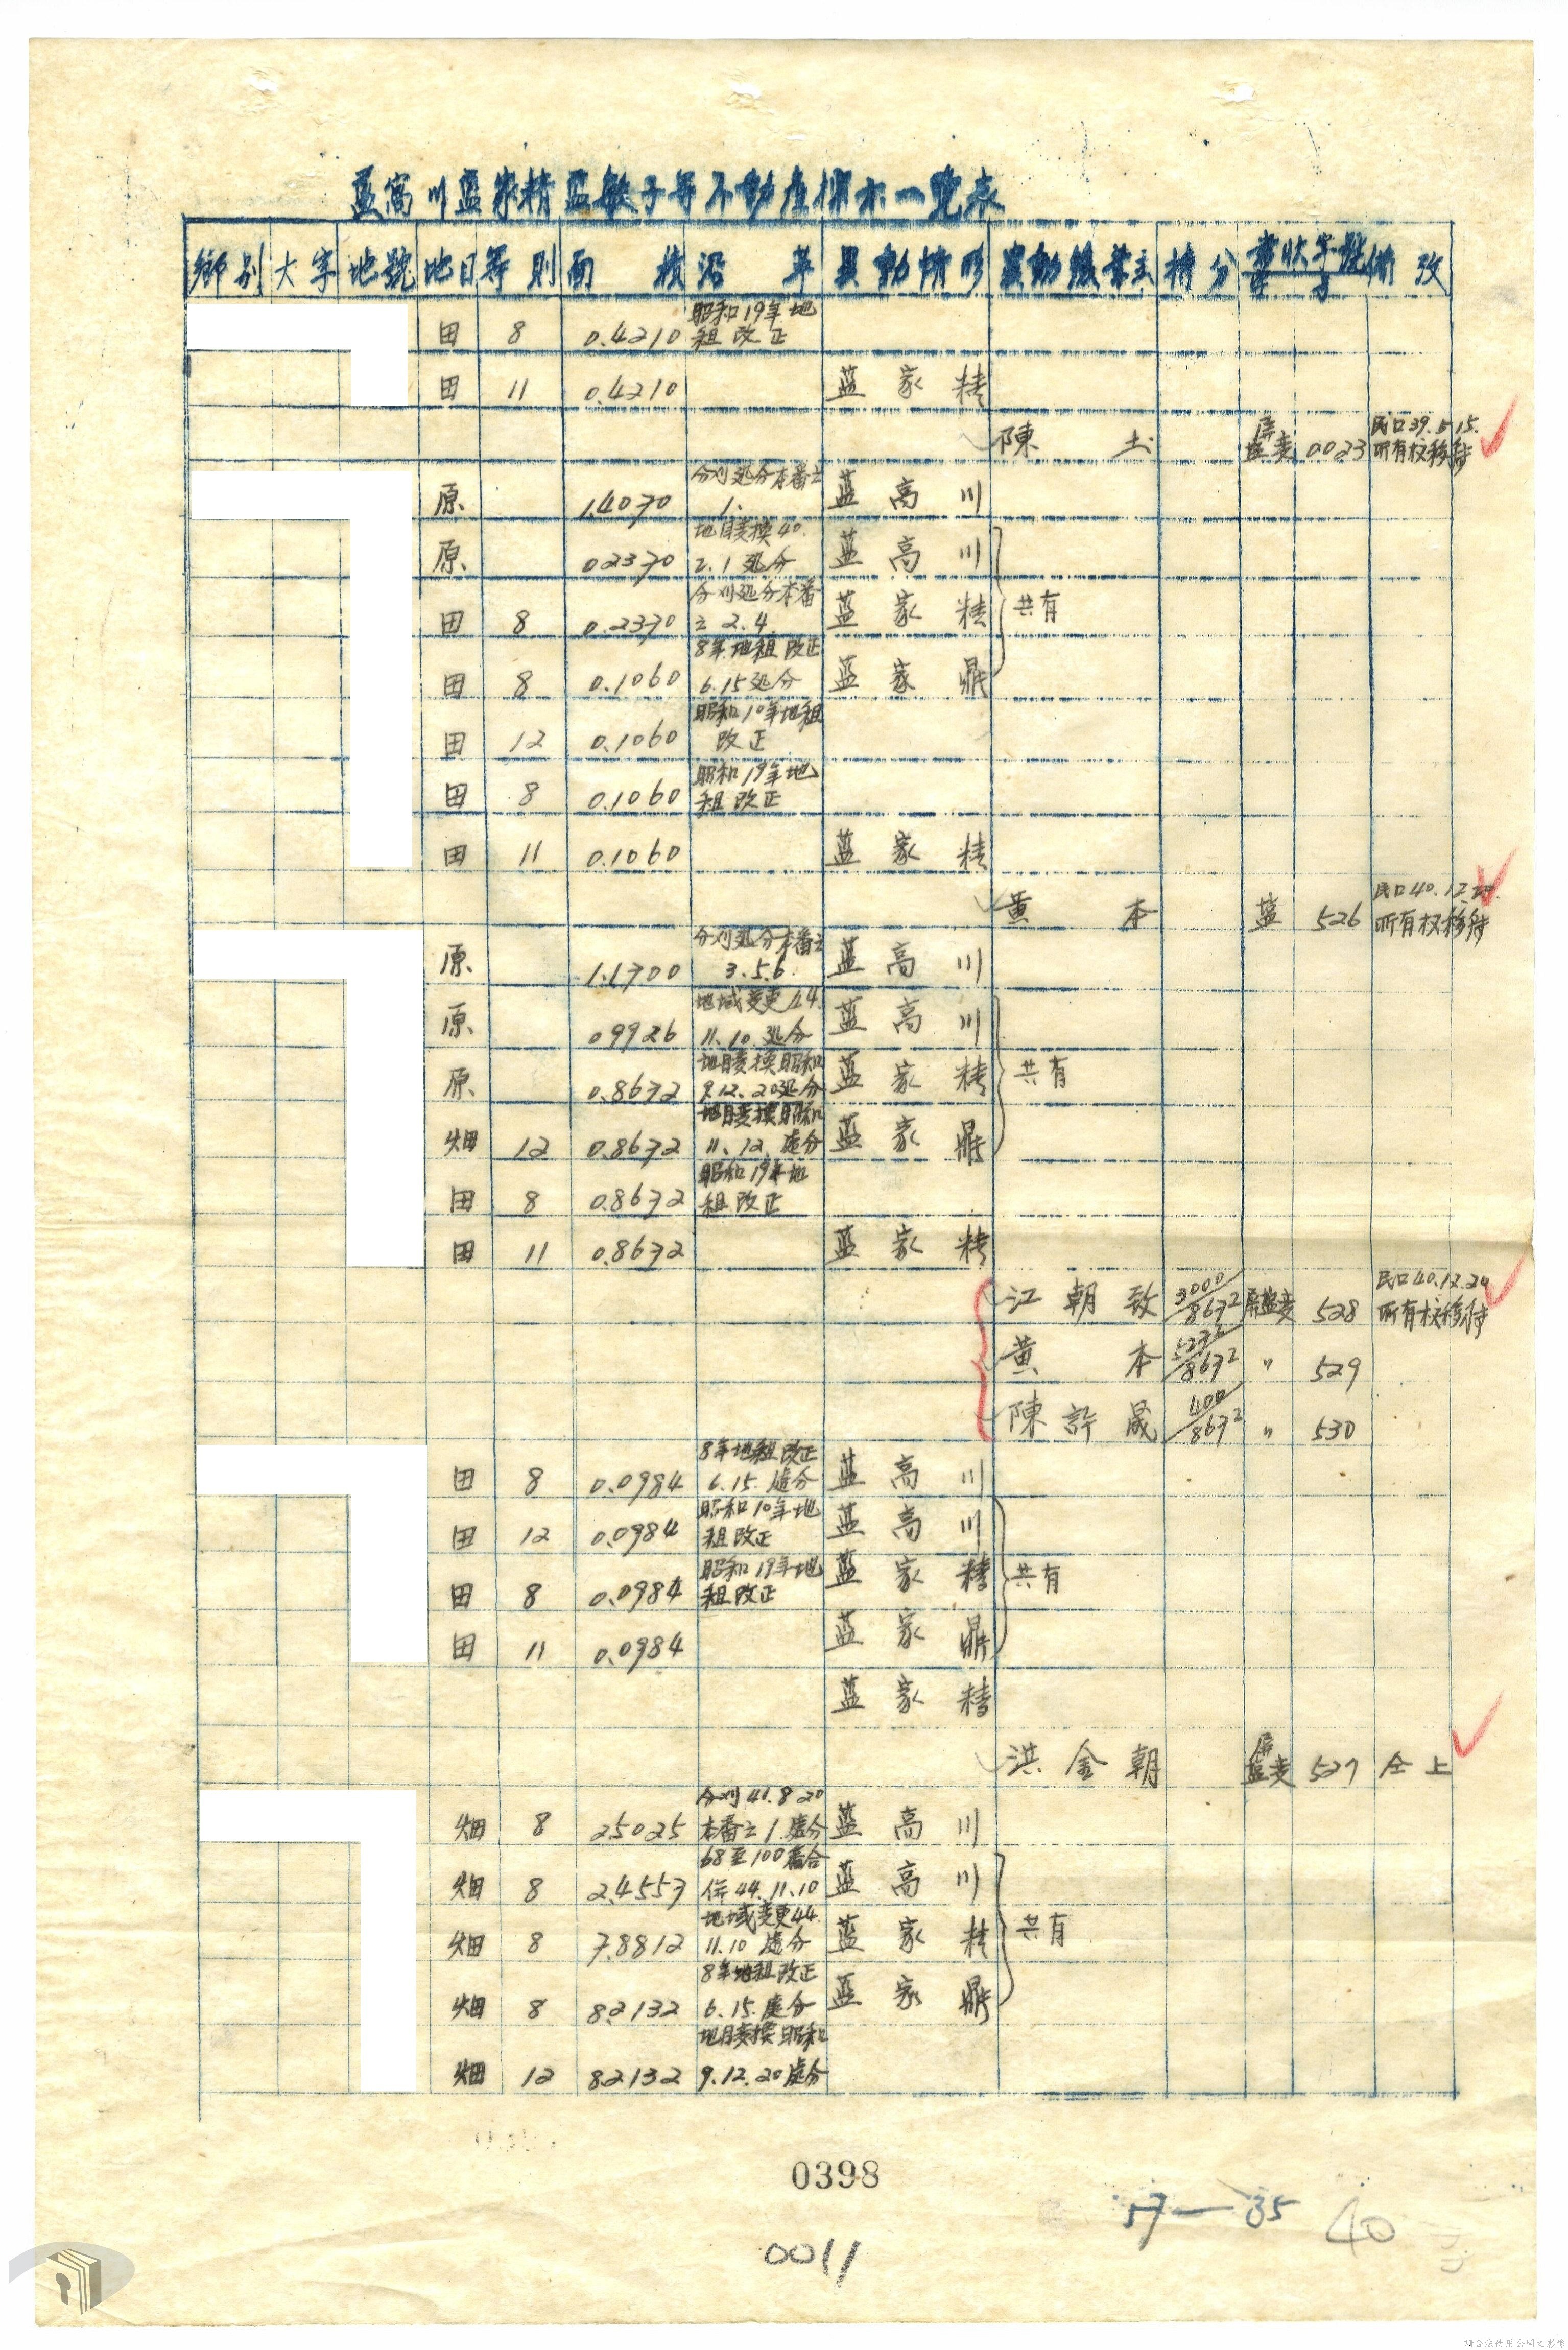 藍高川藍家精藍敏子等不動產標示一覽表
鄉別 大字 地號 地目 等則 面積 沿革 異動情形 異動後業主 持分 書狀字號 備攷
田 8 0.4210 昭和19年地租改正
田 11 0.4210 藍家精
陳 屏盐麦 0.023 民口39.5.15.所有权移轉
原 1.4070 分刈処分本番之1. 藍高川
原 0.2370 地目変換40.2.1処分 藍高川
田 8 0.2370 分刈処分本番之2.4 藍家精 共有
田 8 0.1060 8年地租改正6.15処分 藍家鼎
田 12 0.1060 昭和10年地租改正
田 8 0.1060 昭和19年地租改正
田 11 0.1060 藍家精
黄本 盐 526 民口40.12.20.所有权移轉
原 1.1700 分刈処分本番之3.5.6. 藍高川
原 0.9926 地域変更44.11.10.処分 藍高川
原 0.8672 地目変換昭和9.12.20処分 藍家精 共有
畑 12 0.8672 地目変換昭和11.12.處分 藍家鼎
田 8 0.8672 昭和19年地租改正
田 11 0.8672 藍家精
江朝致 3000/8672 屏盐麦 528 民口40.12.20所有权移轉
黄本 5272/8672 〃 529
陳許晟 400/8672 〃 530
田 8 0.0984 8年地租改正6.15.處分 藍高川
田 12 0.0984 昭和10年地租改正 藍高川
田 8 0.0984 昭和19年地租改正 藍家精 共有
田 11 0.0984 藍家鼎
藍家精
洪金朝 屏盐麦 527 仝上
畑 8 2.5025 分刈41.8.20本番之1.處分 藍高川
畑 8 2.4553 68至100番合併44.11.10 藍高川
畑 8 7.8812 地域変更44.11.10處分 藍家精 共有
畑 8 8.2132 8年地租改正6.15.處分 藍家鼎
畑 12 8.2132 地目変換昭和9.12.20處分
0398
57—35 40
0011
請合法使用公開之影像